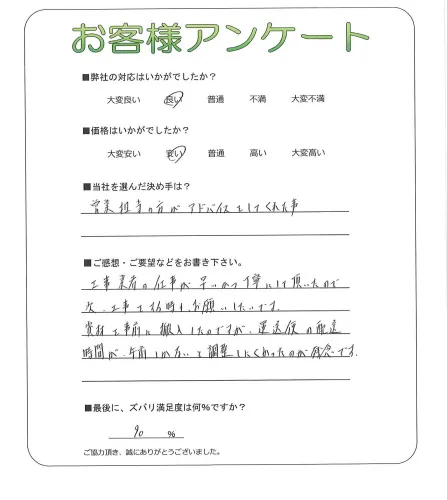 お客様アンケート
■弊社の対応はいかがでしたか？
大変良い 良い 普通 不満 大変不満
■価格はいかがでしたか？
大変安い 安い 普通 高い 大変高い
■当社を選んだ決め手は？
営業担当の方がアドバイスをしてくれた事
■ご感想・ご要望などをお書き下さい。
工事業者の仕事が早いかつ丁寧にして頂いたので
次、工事する時もお願いしたいです。
資材を事前に搬入したのですが、運送屋の配送
時間が、午前しか方いと調整しにくかったのが残念です。
■最後に、ズバリ満足度は何%ですか？
90 %
ご協力頂き、誠にありがとうございました。